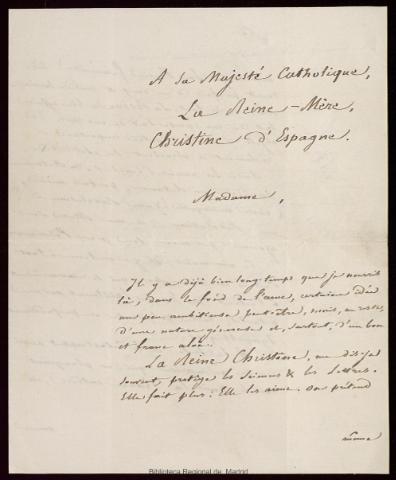 A sa Majesté Catholique,
La Reine-Mère,
Christine d'Espagne.
Madame,
Il y a déjà bien long-temps que je nourris
là, dans le fond de l'ame, certaine idée
un peu ambitieuse peut-être, mais, au reste,
d'une nature généreuse et, surtout, d'un bon
et franc aloi.
La Reine Christine, me dit-on
souvent, protège les Sciences & les Lettres.
Elle fait plus: Elle les aime. On prétend
même
Biblioteca Regional de Madrid